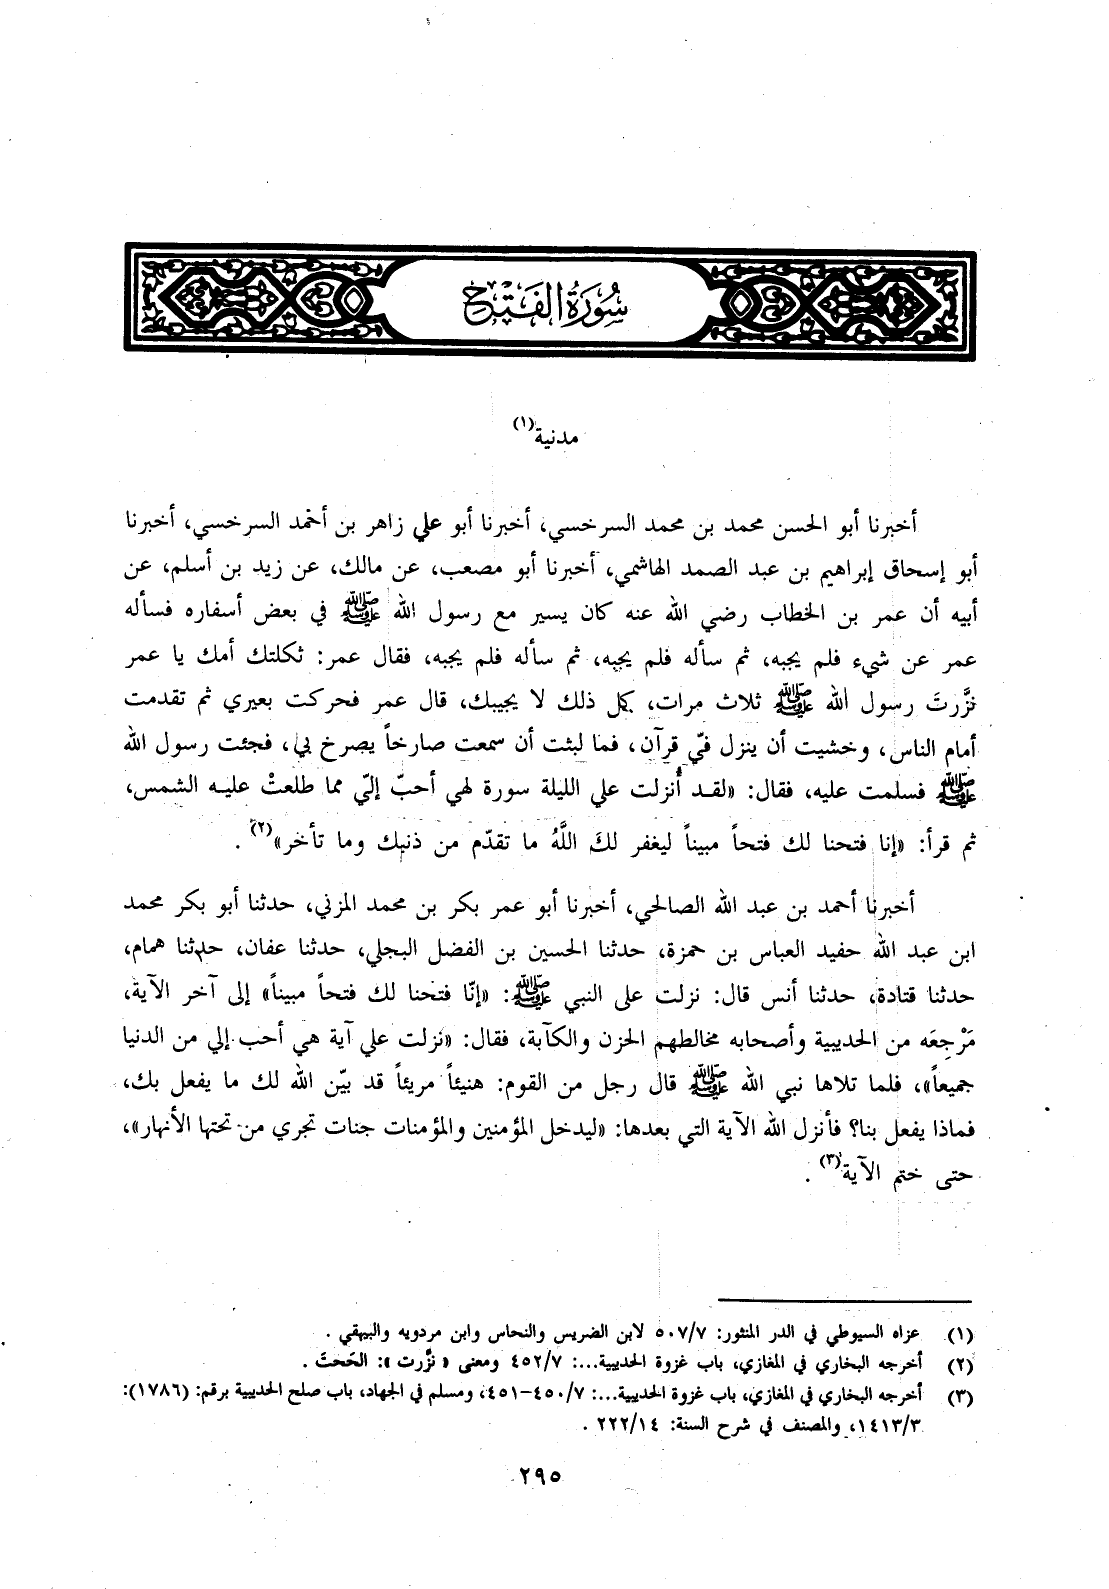 سُورَةُ الفَتْح
مدنية(١)
أخبرنا أبو الحسن محمد بن محمد السرخسي، أخبرنا أبو علي زاهر بن أحمد السرخسي، أخبرنا
أبو إسحاق إبراهيم بن عبد الصمد الهاشمي، أخبرنا أبو مصعب، عن مالك، عن زيد بن أسلم، عن
أبيه أن عمر بن الخطاب رضي الله عنه كان يسير مع رسول الله ﷺ في بعض أسفاره فسأله
عمر عن شيء فلم يجبه، ثم سأله فلم يجبه، ثم سأله فلم يجبه، فقال عمر: ثكلتك أمك يا عمر
نزَّرتَ رسول الله ﷺ ثلاث مرات، كل ذلك لا يجيبك، قال عمر فحركت بعيري ثم تقدمت
أمام الناس، وخشيت أن ينزل فيّ قرآن، فما لبثت أن سمعت صارخاً يصرخ بي، فجئت رسول الله
ﷺ فسلمت عليه، فقال: «لقد أُنزلت علي الليلة سورة لهي أحبّ إليّ مما طلعتْ عليه الشمس،
ثم قرأ: «إنا فتحنا لك فتحاً مبيناً ليغفر لكَ اللَّهُ ما تقدّم من ذنبك وما تأخر»(٢).
أخبرنا أحمد بن عبد الله الصالحي، أخبرنا أبو عمر بكر بن محمد المزني، حدثنا أبو بكر محمد
ابن عبد الله حفيد العباس بن حمزة، حدثنا الحسين بن الفضل البجلي، حدثنا عفان، حدثنا همام،
حدثنا قتادة، حدثنا أنس قال: نزلت على النبي ﷺ: «إنّا فتحنا لك فتحاً مبيناً» إلى آخر الآية،
مَرْجِعَه من الحديبية وأصحابه مخالطهم الحزن والكآبة، فقال: «نزلت علي آية هي أحب إلي من الدنيا
جميعاً»، فلما تلاها نبي الله ﷺ قال رجل من القوم: هنيئاً مريئاً قد بيّن الله لك ما يفعل بك،
فماذا يفعل بنا؟ فأنزل الله الآية التي بعدها: «ليدخل المؤمنين والمؤمنات جنات تجري من تحتها الأنهار»،
حتى ختم الآية(٣).
(١) عزاه السيوطي في الدر المنثور: ٥٠٧/٧ لابن الضريس والنحاس وابن مردويه والبيهقي.
(٢) أخرجه البخاري في المغازي، باب غزوة الحديبية...: ٤٥٢/٧ ومعنى «نزَّرت»: الححتَ.
(٣) أخرجه البخاري في المغازي، باب غزوة الحديبية...: ٤٥٠/٧–٤٥١، ومسلم في الجهاد، باب صلح الحديبية برقم: (١٧٨٦):
١٤١٣/٣، والمصنف في شرح السنة: ٢٢٢/١٤.
٢٩٥